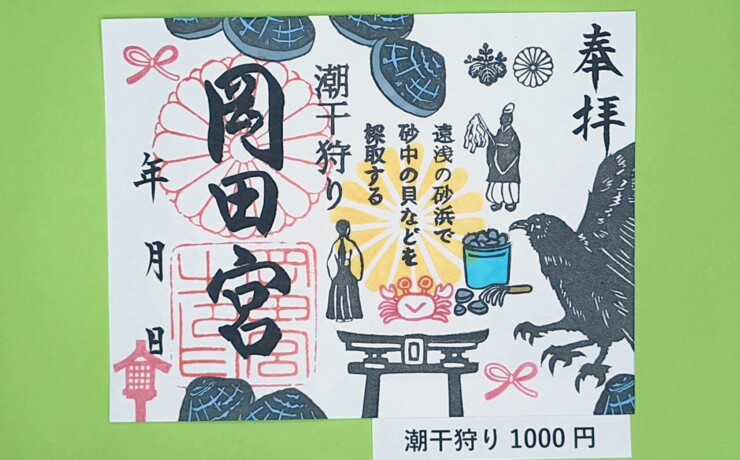 奉拝
遠浅の砂浜で
砂中の貝などを
採取する
潮干狩り
岡田宮
年 月 日
潮干狩り 1000 円